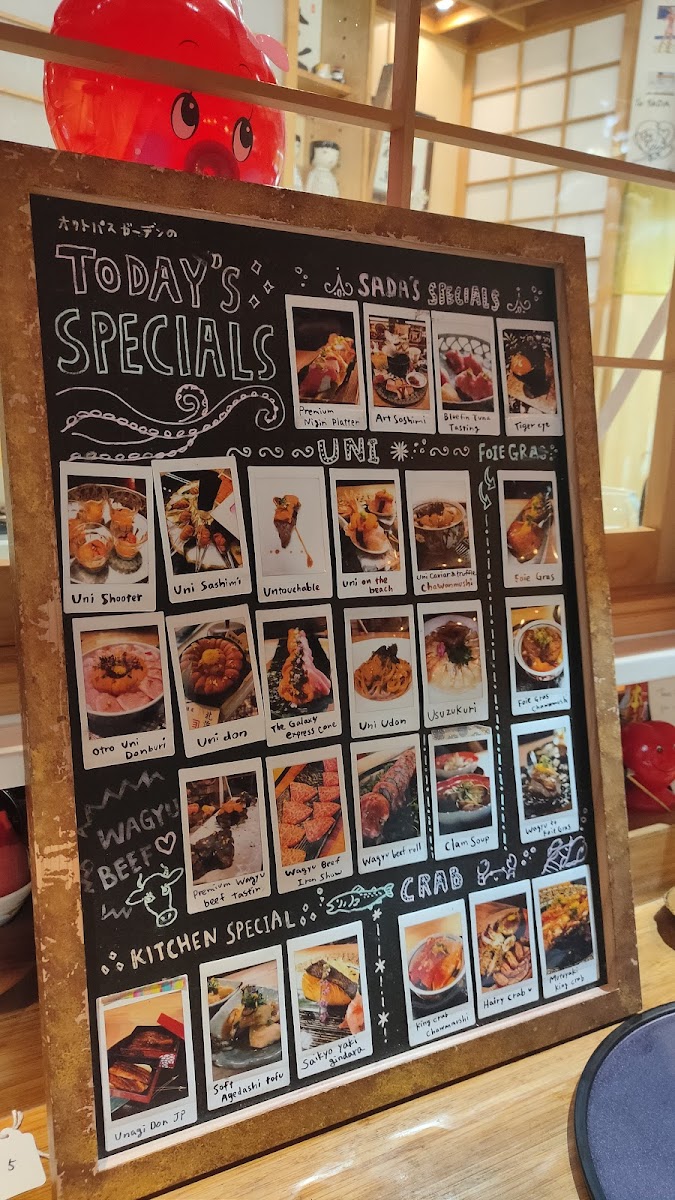 オクトパスガーデンの
TODAY'S
SPECIALS
SADA'S SPECIALS
Premium
Nigiri Platter
Art Sashimi
Bluefin Tuna
Tasting
Tiger eye
UNI
FOIE GRAS
Uni Shooter
Uni Sashimi
Untouchable
Uni on the
beach
Uni Caviar & truffle
Chawanmushi
Foie Gras
Otro Uni
Donburi
Uni don
The Galaxy
express Cone
Uni Udon
Usuzukuri
Foie Gras
Chawanmushi
WAGYU
BEEF
Premium Wagyu
beef tastin
Wagyu Beef
Iron Show
Wagyu beef roll
Clam Soup
Wagyu to
Foie Gras
KITCHEN SPECIAL
CRAB
Unagi Don JP
Soft
Agedashi tofu
Saikyo Yaki
gindara
King crab
Chawmanshi
Hairy crab
king crab
5